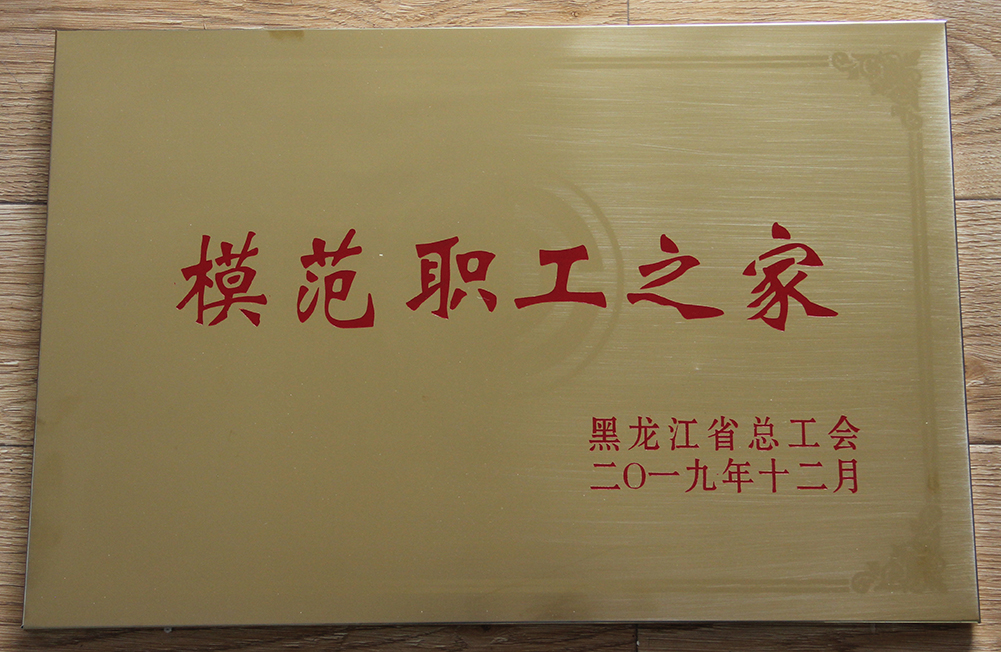 模范职工之家
黑龙江省总工会
二〇一九年十二月